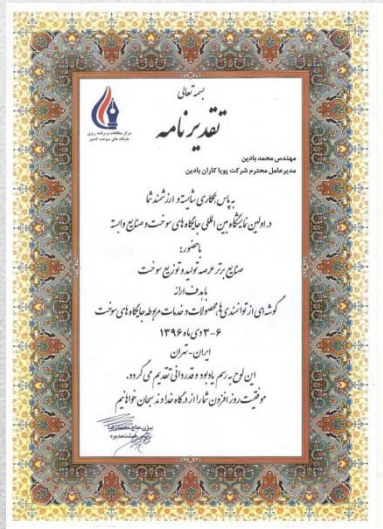 بسمه تعالی
تقدیرنامه
مرکز مطالعات و برنامه ریزی
جایگاه های سوخت کشور
مهندس محمد بادین
مدیرعامل محترم شرکت پویا کاران بادین
به پاس همکاری شایسته و ارزشمند شما
در اولین نمایشگاه بین المللی جایگاه های سوخت و صنایع وابسته
با حضور:
صنایع برتر عرصه تولید و توزیع سوخت
با هدف ارائه
گوشه ای از توانمندی ها، محصولات و خدمات مربوطه جایگاه های سوخت
۳-۶ دی ماه ۱۳۹۶
ایران-تهران
این لوح به رسم یادبود و قدردانی تقدیم می گردد.
موفقیت روز افزون شما را از درگاه خداوند سبحان خواهانیم
بیژن حاج محمدرضا
رئیس هیئت مدیره